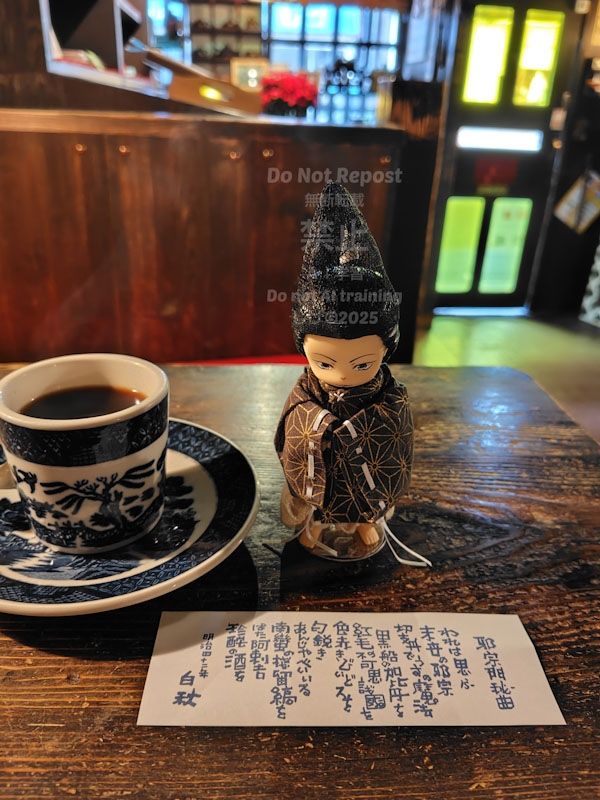 Do Not Repost
無断転載
禁止
Do not AI training
©2025
邪宗門秘曲
われは思ふ
末世の邪宗
切支丹でうすの魔法
黒船の加比丹を
紅毛の不可思議國を
色赤きびいどろを
匂鋭き
あんじやべいいる
南蛮の桟留縞を
はた阿刺吉
の酒を
明治四十二年
白秋